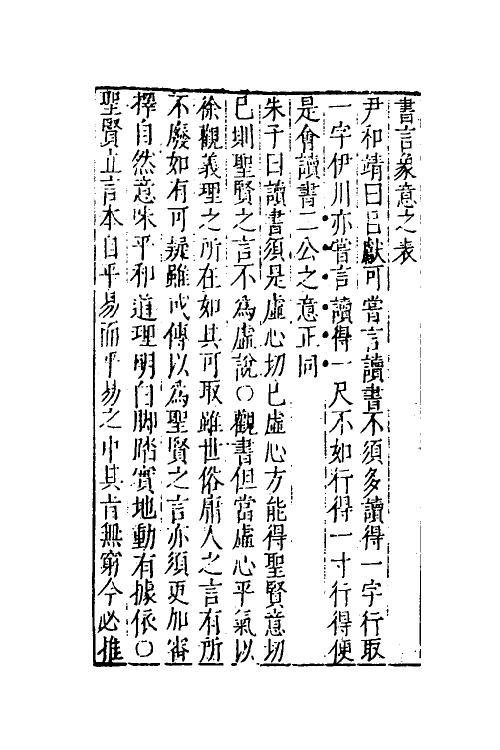 書言象意之表
尹和靖曰呂獻可嘗言讀書不須多讀得一字行取
一字伊川亦嘗言讀得一尺不如行得一寸行得便
是會讀書二公之意正同
朱子曰讀書須是虛心切已虛心方能得聖賢意切
已則聖賢之言不為虛說○觀書但當虛心平氣以
徐觀義理之所在如其可取雖世俗庸人之言有所
不廢如有可疑雖或傳以為聖賢之言亦須更加審
擇自然意味平和道理明白脚踏實地動有據依○
聖賢立言本自平易而平易之中其旨無窮今必推